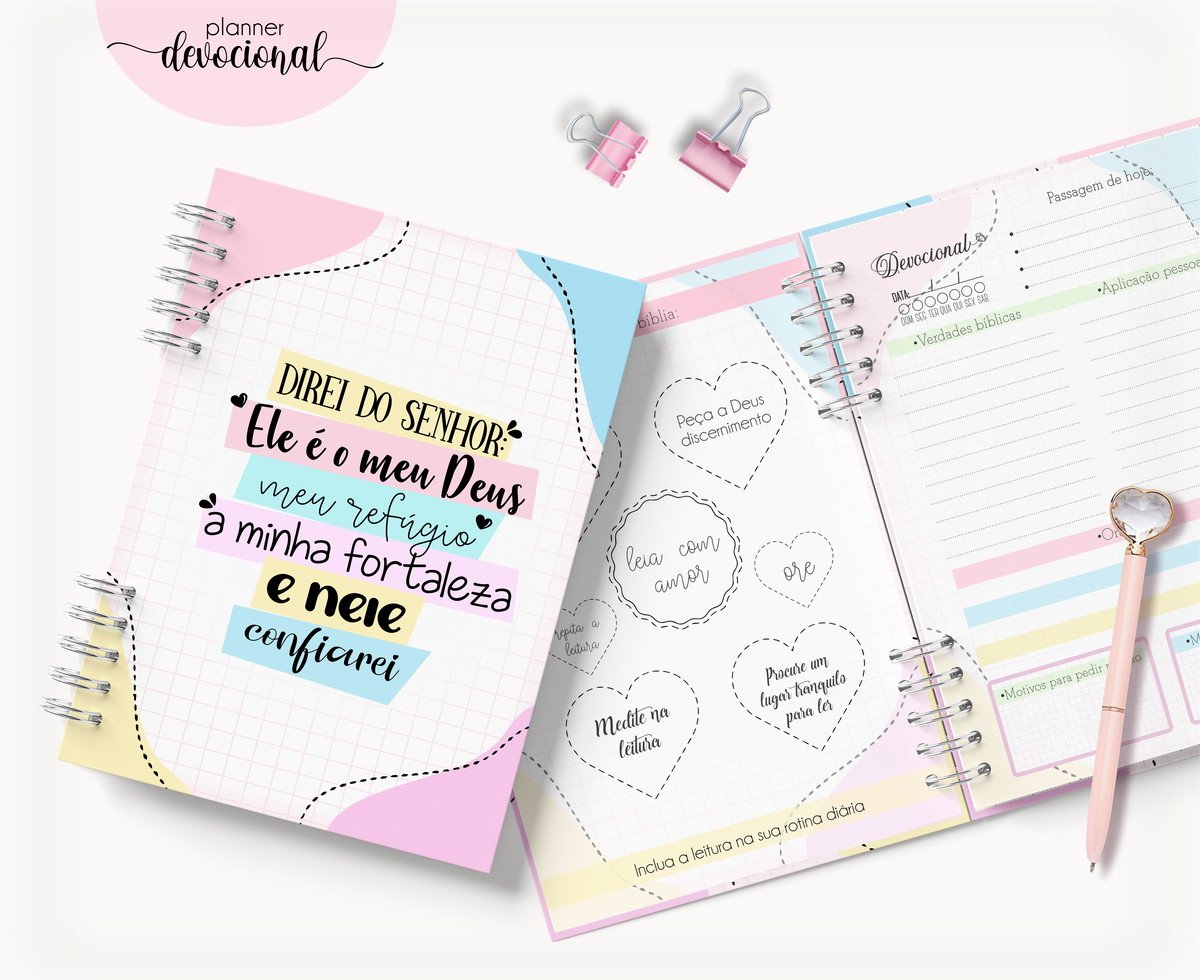 planner
devocional
DIREI DO SENHOR:
Ele é o meu Deus
meu refúgio
a minha fortaleza
e nele
confiarei
bíblia:
Peça a Deus
discernimento
leia com
amor
ore
repita a
leitura
Procure um
lugar tranquilo
para ler
Medite na
leitura
Inclua a leitura na sua rotina diária
Devocional
DATA:
DOM SEG TER QUA QUI SEX SAB
Passagem de hoje:
•Verdades bíblicas
•Aplicação pessoa
•Motivos para pedir